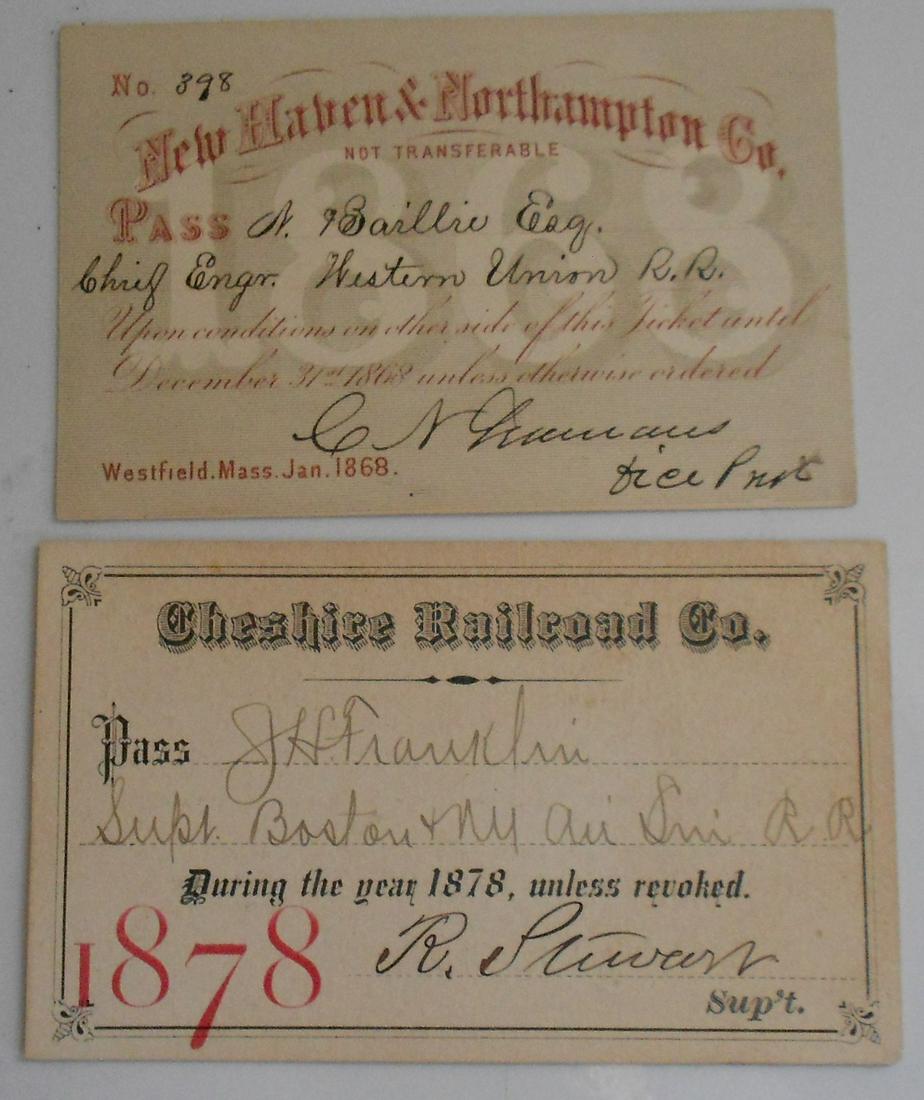 No. 398
New Haven & Northampton Co.
NOT TRANSFERABLE
1868
PASS N. Baillie Esq.
Chief Engr. Western Union R.R.
Upon conditions on other side of this Ticket until
December 31st 1868 unless otherwise ordered
C N
Vice Prest
Westfield. Mass. Jan. 1868.
Cheshire Railroad Co.
Pass J H Franklin
Supt. Boston & NY Air Lin R R
During the year 1878, unless revoked.
1878
R. Stewart
Sup't.